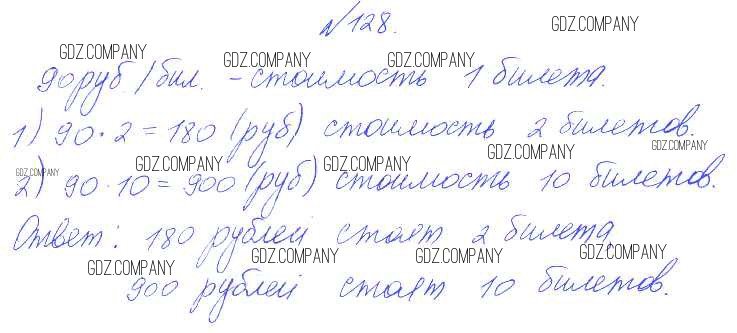 №128.
GDZ.COMPANY
GDZ.COMPANY GDZ.COMPANY GDZ.COMPANY GDZ.COMPANY
90 руб/бил. - стоимость 1 билета.
1) 90·2=180 (руб) стоимость 2 билетов.
GDZ.COMPANY GDZ.COMPANY GDZ.COMPANY GDZ.COMPANY GDZ.COMPANY
2) 90·10=900 (руб) стоимость 10 билетов.
Ответ: 180 рублей стоят 2 билета
GDZ.COMPANY GDZ.COMPANY GDZ.COMPANY GDZ.COMPANY
900 рублей стоят 10 билетов.